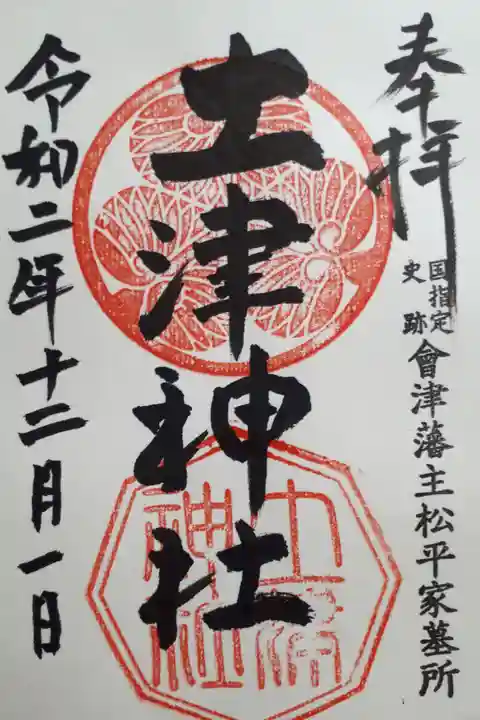 奉拝
国指定
史跡
會津藩主松平家墓所
土津神社
土津
神社
令和二年十二月一日